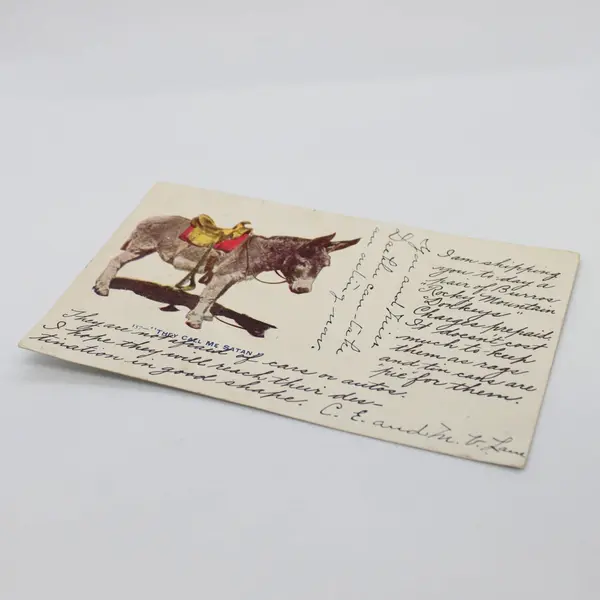 I am shipping
you to-day a
pair of Burros
"Rocky Mountain
Donkeys"
Charges prepaid.
It doesn't cost
much to keep
them as rags
and tin cans are
pie for them.
They are not afraid of cars or autos.
I hope they will reach their des-
tination in good shape. C. E. and M. V. Lane
You and
can take
an outing now.
"THEY CALL ME SATAN"